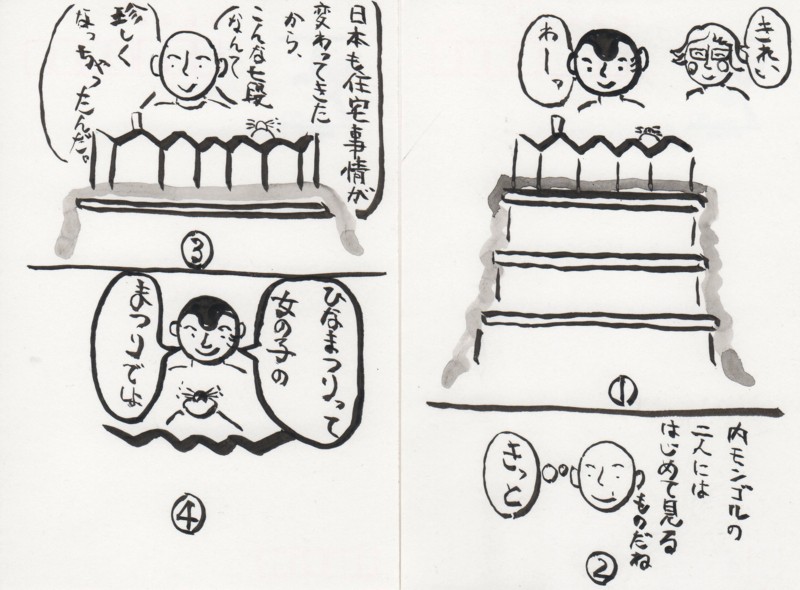 きれい
わーっ
①
内モンゴルの
二人には
はじめて見る
ものだね
きっと
②
日本も住宅事情が
変わってきた
から、
こんな七段
なんて
珍しく
なっちゃったんだ。
③
ひなまつりって
女の子の
まつりでしょ
④